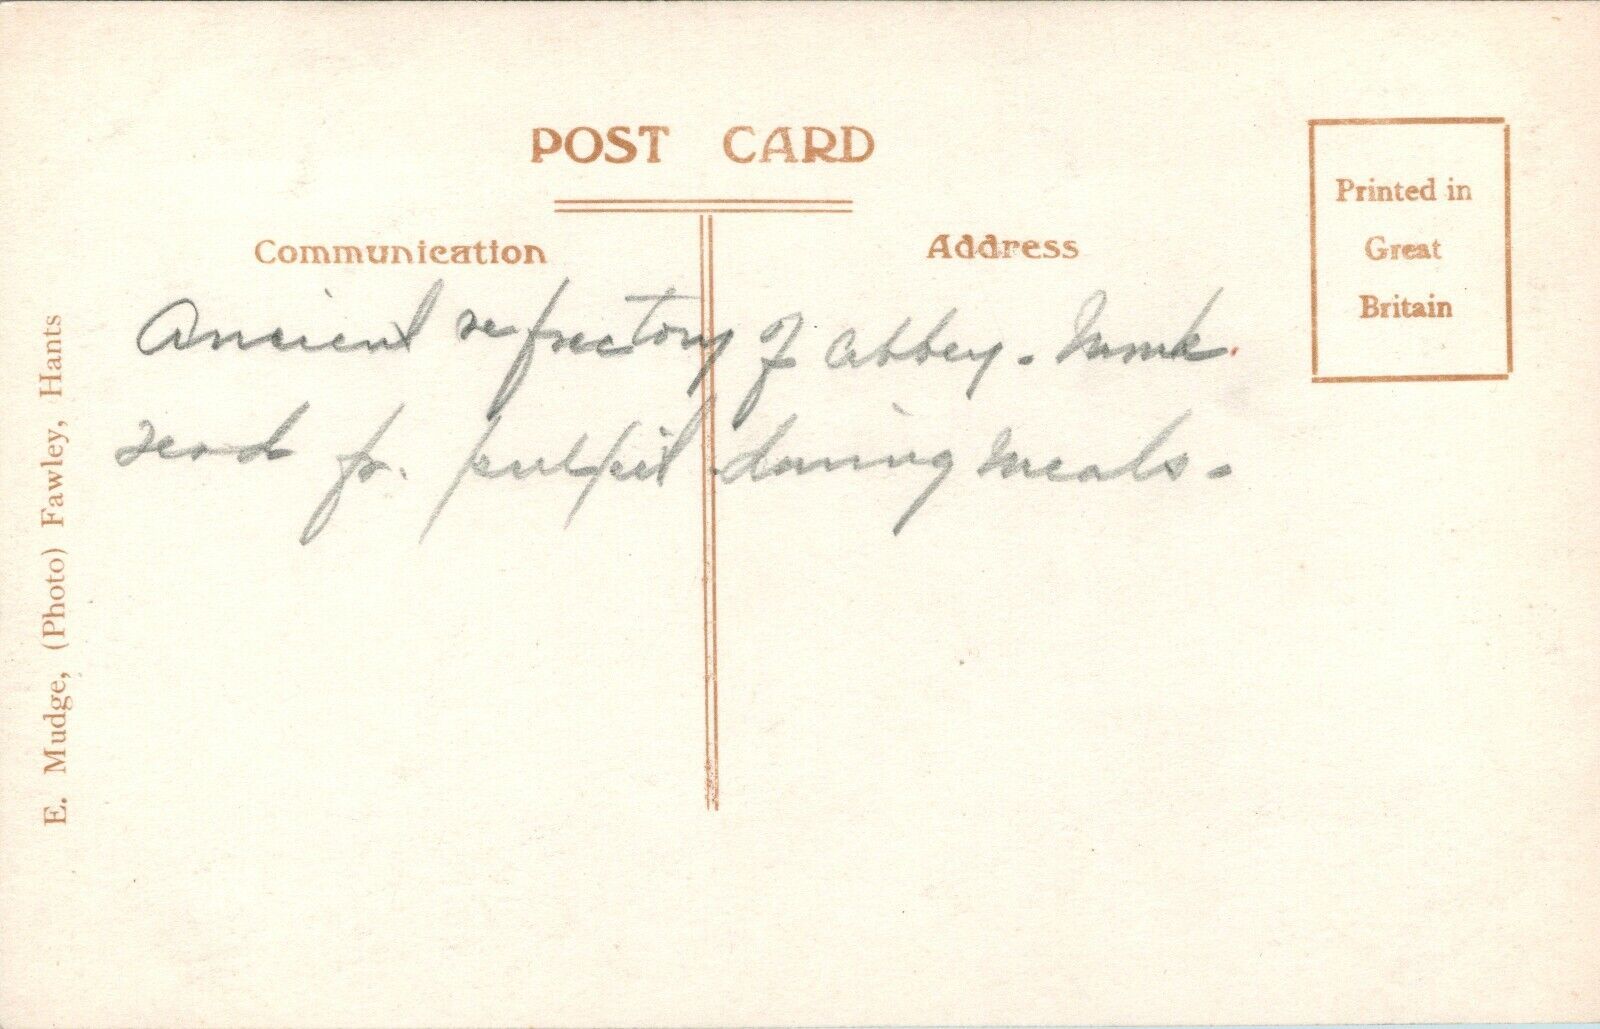 POST CARD
Communication
Address
Printed in
Great
Britain
Ancient refrectory of abbey. Monk
read fr. pulpit during meals.
E. Mudge, (Photo) Fawley, Hants